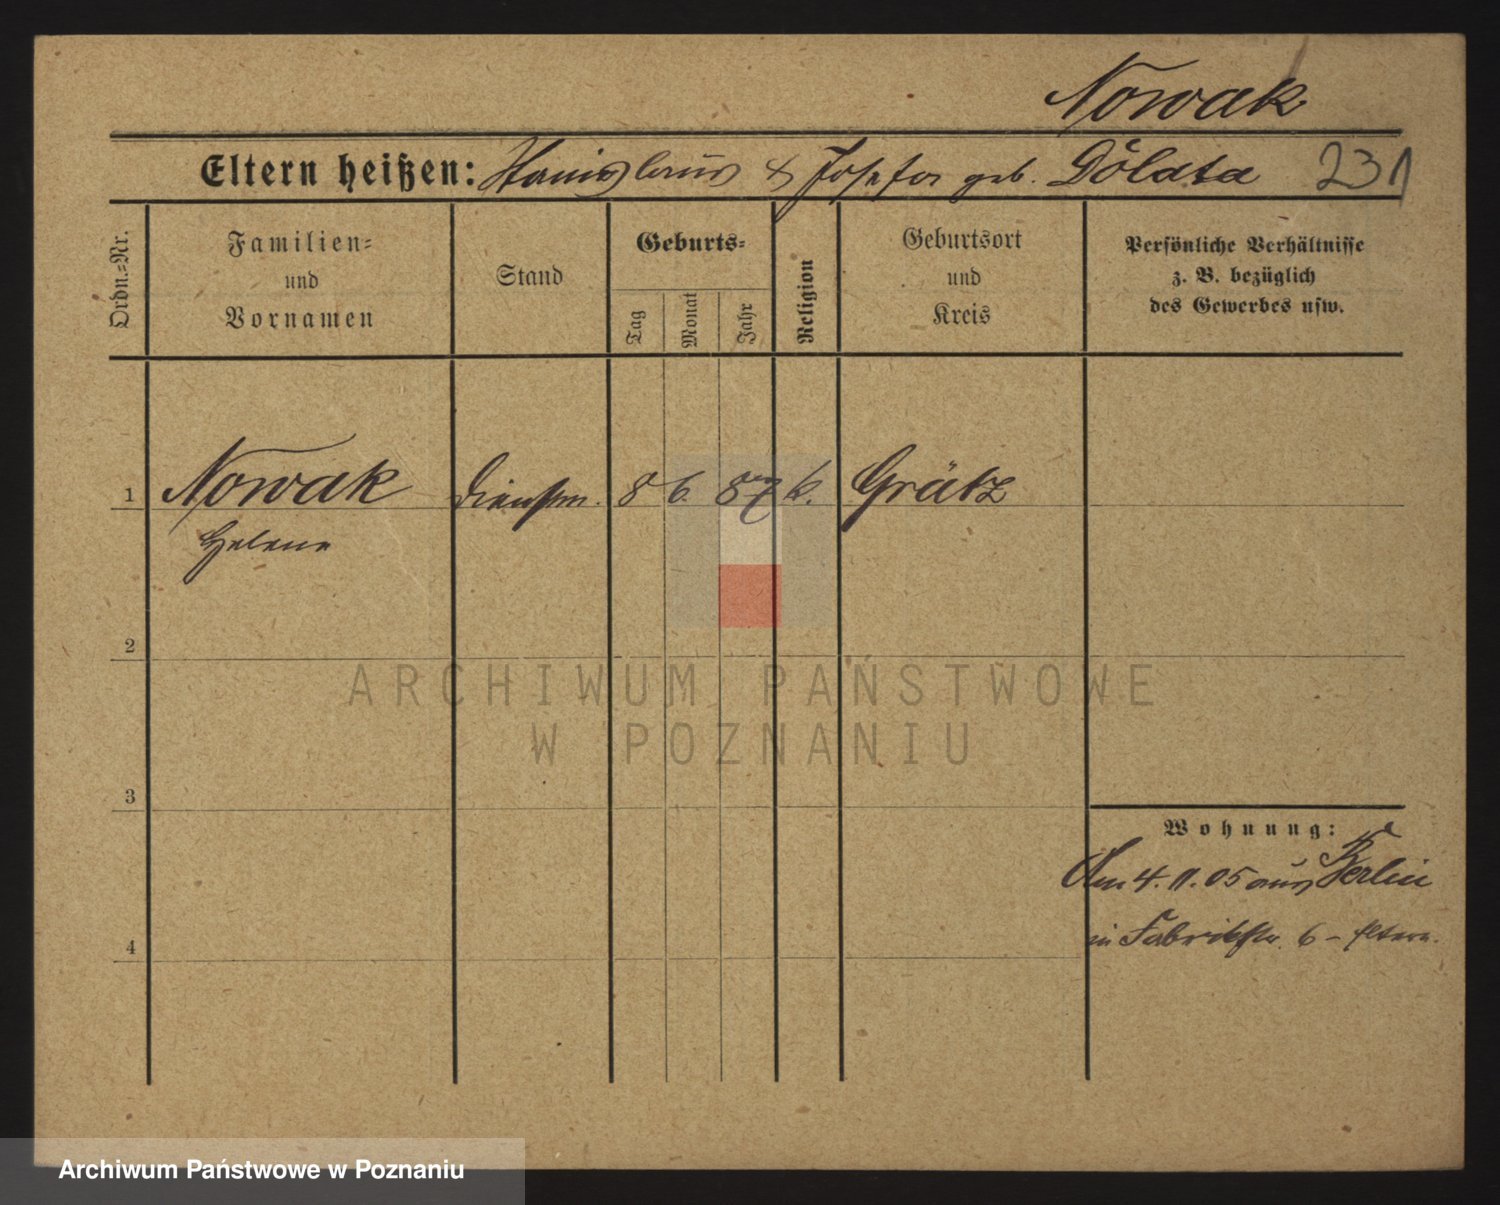 Nowak
Eltern heißen: Stanislaus & Josefa geb. Dölata 231
Ordn.-Nr.
Familien-
und
Vornamen
Stand
Geburts-
Tag
Monat
Jahr
Religion
Geburtsort
und
Kreis
Persönliche Verhältnisse
z. B. bezüglich
des Gewerbes usw.
1 Nowak Dienstm. 8 6. 87 k. Grätz
Helene
2
ARCHIWUM PAŃSTWOWE
W POZNANIU
3
Wohnung:
Am 4. 11. 05 aus Berlin
in Fabrikstr. 6 - Eltern.
4
Archiwum Państwowe w Poznaniu